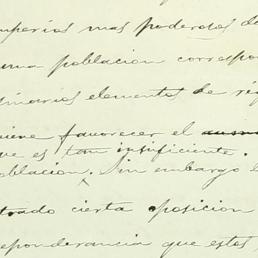 imperios mas poderosos de
una poblacion correspon
dinarios elementos de ri
viene favorecer el aume
que es tan insificiente.
poblacion. Sin embargo e
trado cierta posicion
eponderancia que estos